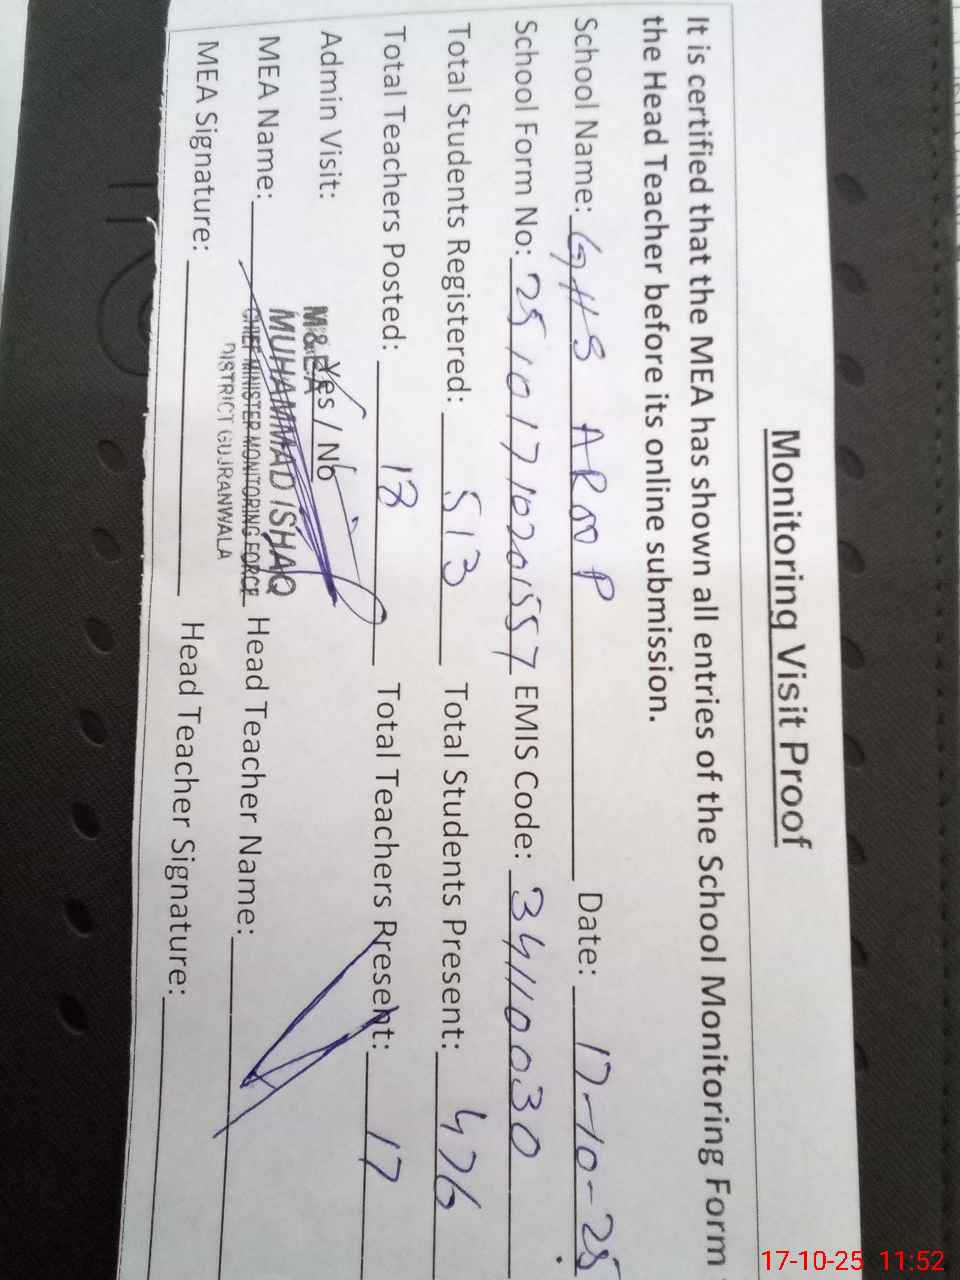 Monitoring Visit Proof
It is certified that the MEA has shown all entries of the School Monitoring Form
the Head Teacher before its online submission.
School Name: GHS AROOP Date: 17-10-25
School Form No: 25101710201557 EMIS Code: 34110030
Total Students Registered: 513 Total Students Present: 476
Total Teachers Posted: 18 Total Teachers Present: 17
Admin Visit: Yes / No
M&EA
MUHAMMAD ISHAQ
MEA Name: CHIEF MINISTER MONITORING FORCE Head Teacher Name:
DISTRICT GUJRANWALA
MEA Signature: Head Teacher Signature:
17-10-25 11:52